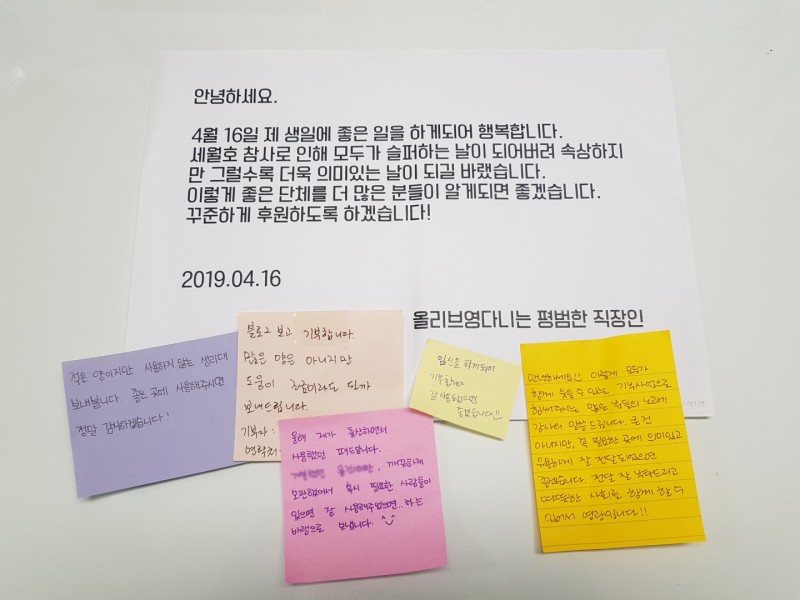 안녕하세요.
4월 16일 제 생일에 좋은 일을 하게되어 행복합니다.
세월호 참사로 인해 모두가 슬퍼하는 날이 되어버려 속상하지
만 그럴수록 더욱 의미있는 날이 되길 바랬습니다.
이렇게 좋은 단체를 더 많은 분들이 알게되면 좋겠습니다.
꾸준하게 후원하도록 하겠습니다!
2019.04.16
올리브영다니는 평범한 직장인
적은 양이지만 사용하지 않는 생리대
보내봅니다. 좋은 곳에 사용해주시면
정말 감사하겠습니다!
블로그 보고 기부합니다.
많은 양은 아니지만
도움이 조금이라도 될까
보내드립니다.
기부자 :
연락처:
올해 제가 출산하면서
사용했던 패드입니다.
깨끗하게
보관했어서 혹시 필요한 사람들이
있으면 잘 사용해주었으면.. 하는
바램으로 보냅니다.
임신을 하게되어
기부합니다
잘 사용되었으면
좋겠습니다!!
안녕하세요!! 이렇게 모두가
함께 웃을 수 있는 기부사업으로
힘써주시는 많은 분들의 노고에
감사의 말씀 드립니다. 큰건
아니지만, 꼭 필요한 곳에 의미있고
유용하게 잘 전달되었으면
좋겠습니다. 전달 잘 부탁드리고
따뜻한 사회를 함께 할 수
있어서 영광입니다!!